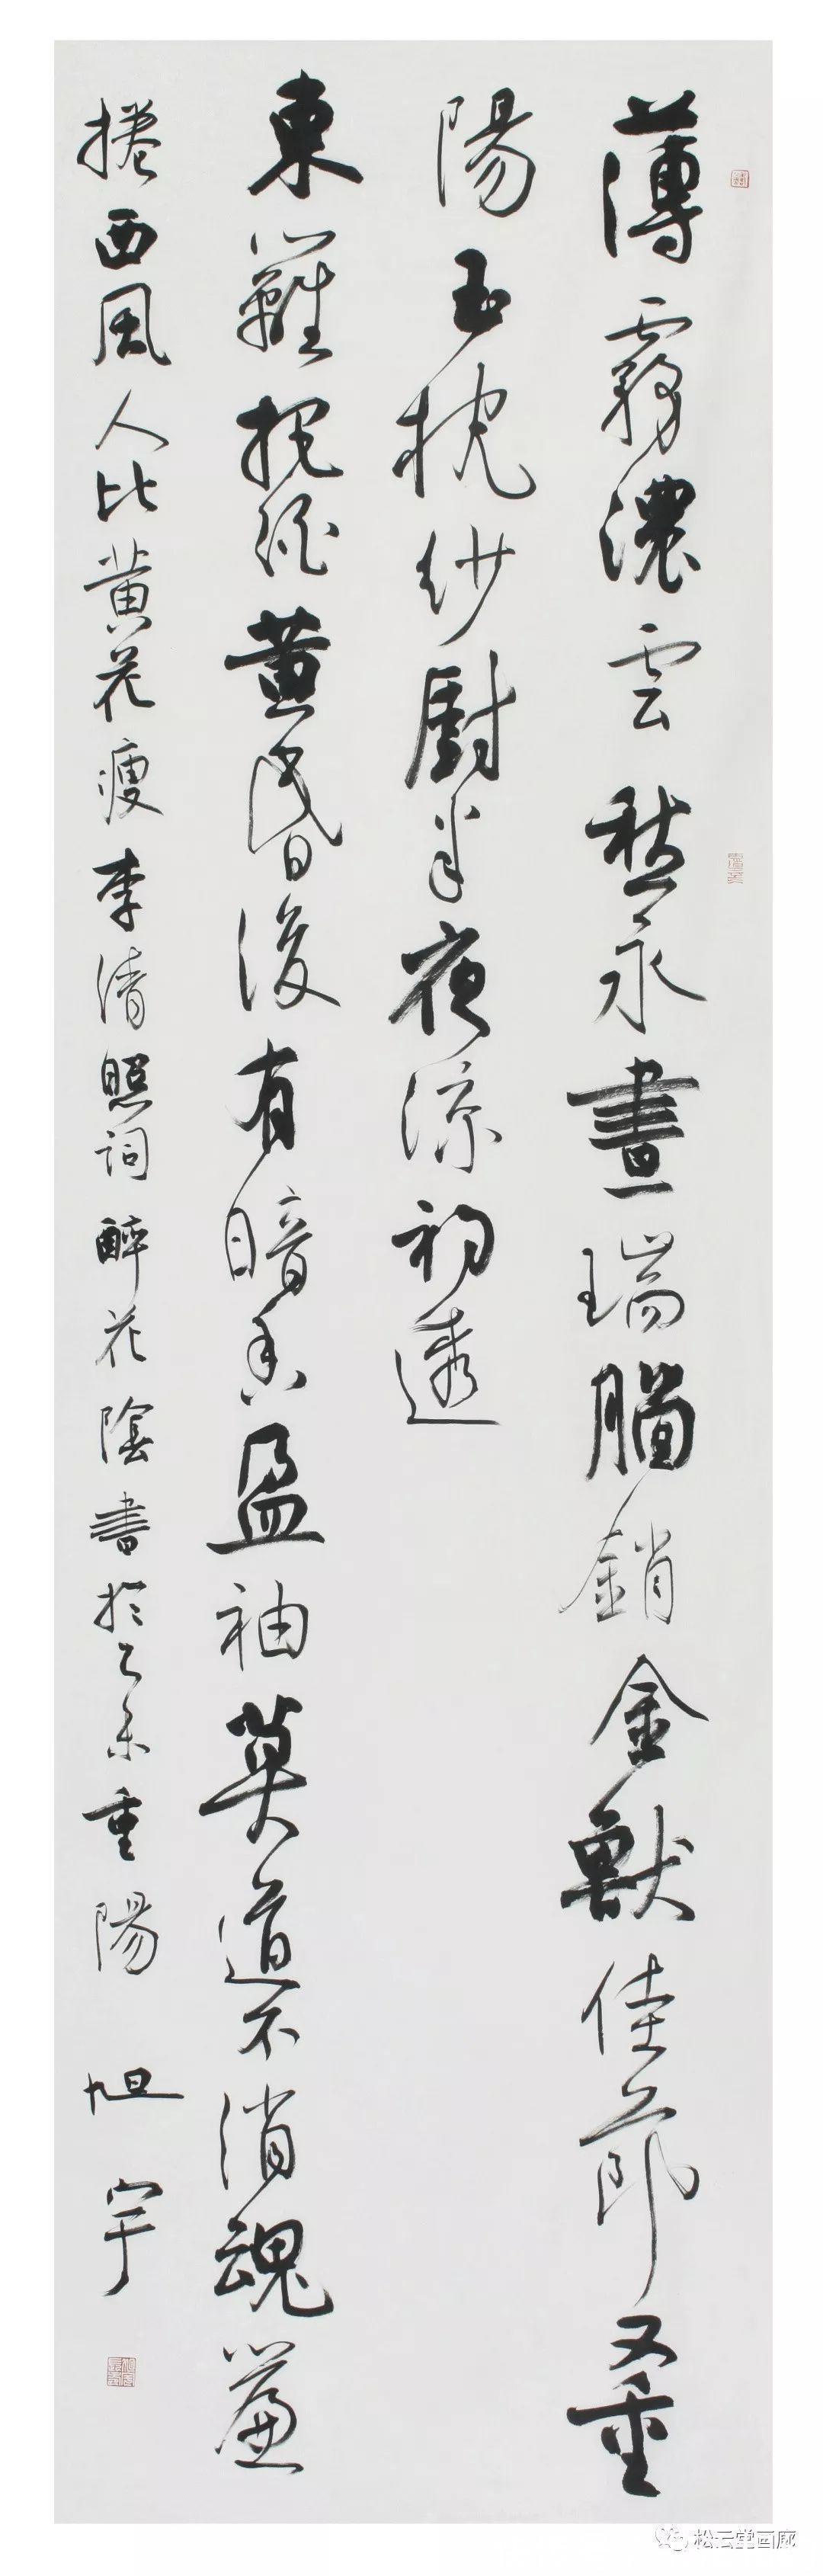 薄霧濃雲愁永晝瑞腦銷金獸佳節又重
陽玉枕紗廚半夜涼初透
東籬把酒黃昏後有暗香盈袖莫道不消魂簾
捲西風人比黃花瘦李清照詞醉花陰書於乙未重陽 旭宇
松云堂画廊